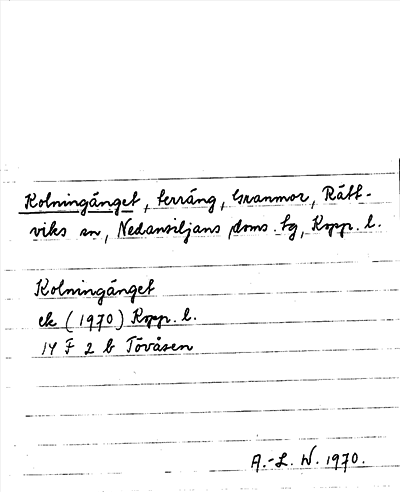 Kolningänget, terräng, Granmor, Rätt-
viks sn, Nedansiljans doms. tg, Kopp. l.
Kolningänget
ek (1970) Kopp. l.
14 F 2 b Tövåsen
A.-L. W. 1970.